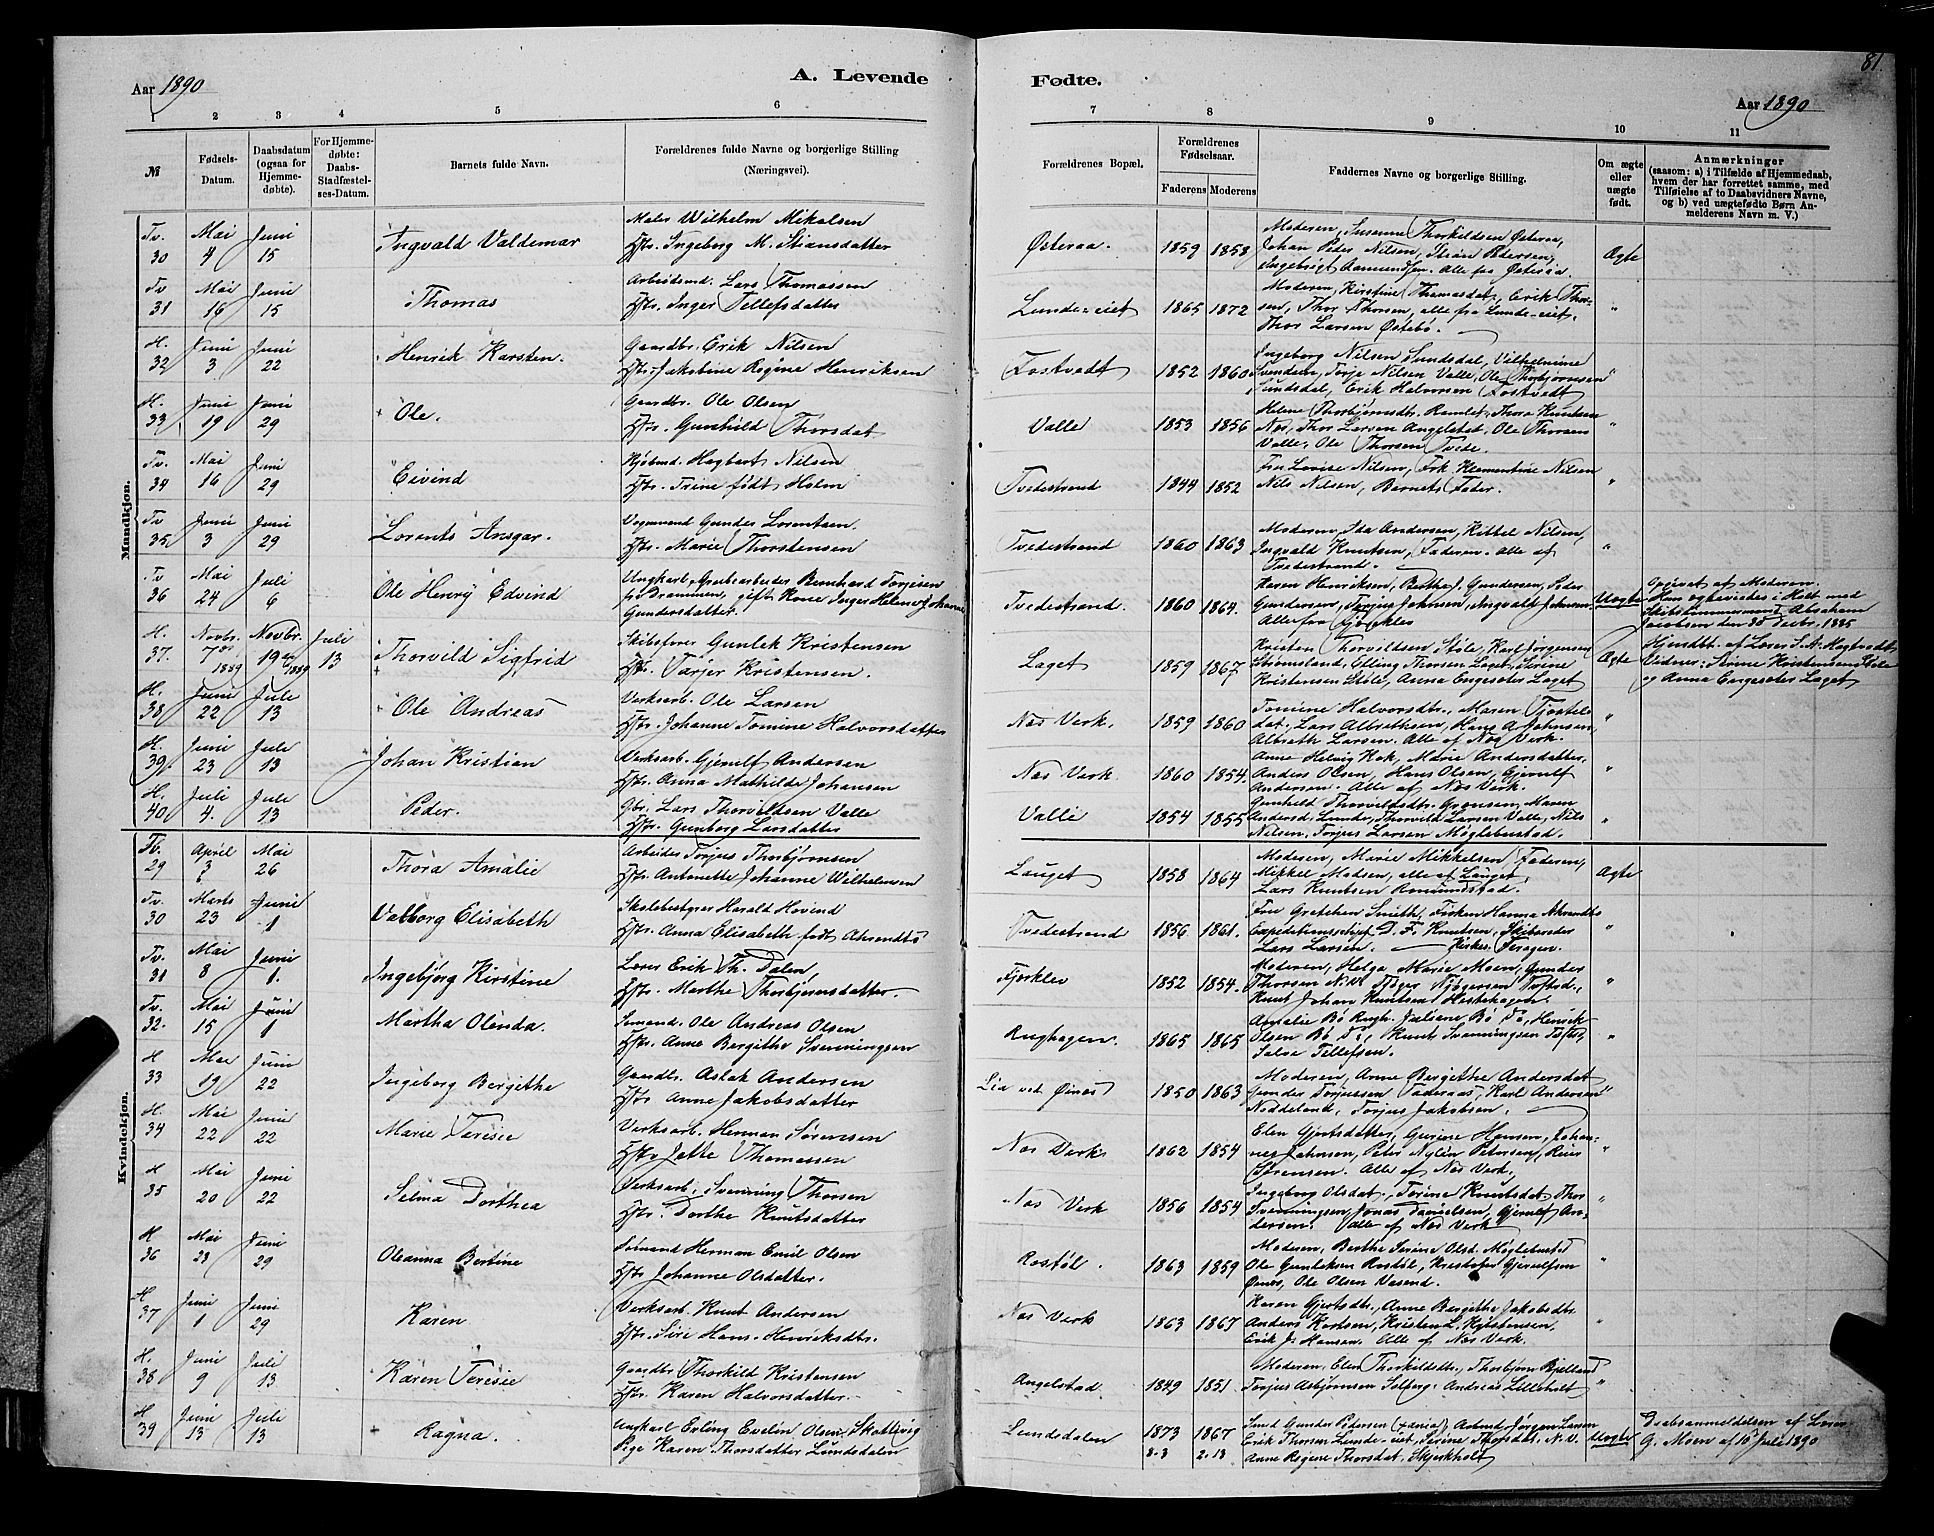 Aar 1890
A. Levende
Fødte.
81.
Aar 1890
1 2 3 4 5 6
7 8 9 10 11
№
Fødsels-Datum.
Daabsdatum (ogsaa for Hjemmedøbte).
For Hjemmedøbte: Daabs-Stadfæstelses-Datum.
Barnets fulde Navn.
Forældrenes fulde Navne og borgerlige Stilling (Næringsvei).
Forældrenes Bopæl.
Forældrenes Fødselsaar.
Faderens
Moderens
Faddernes Navne og borgerlige Stilling.
Om ægte eller uægte født.
Anmærkninger
(saasom: a) i Tilfælde af Hjemmedaab, hvem der har forrettet samme, med Tilføielse af to Daabsvidners Navne, og b) ved uægtefødte Børn Anmelderens Navn m. V.)
Mandkjøn.
Tv. 30 Mai 4 Juni 15 Ingvald Valdemar
Maler Wilhelm Mikalsen
Hstr. Ingeborg M. Stiansdatter
Østeraa. 1859 1858
Moderen, Susanne Thorkildsen Østeraa,
Johan Peder Nilsen, Stian Pedersen,
Ingebrigt Aamundsen. Alle fra Østeraa.
Ægte
Tv 31 Mai 16 Juni 15 Thomas
Arbeidsmd. Lars Thomassen
Hstr. Inger Tellefsdatter
Lunde-eiet 1865 1872
Moderen, Kirstine Thomasdat., Erik Thor-
sen, Thor Thorsen, alle fra Lunde-eiet,
Thor Larsen Østebö.
"
H. 32 Juni 3 Juni 22 Henrik Karsten.
Gaardbr. Erik Nilsen
Hstr. Jakobine Regine Henriksen
Fostvedt 1852 1860
Ingeborg Nilsen Sundsdal, Vilhelmine
Svendsen, Torje Nilsen Valle, Ole Thorbjørnsen
Sundsdal, Erik Halvorsen Fostvedt
"
H. 33 Juni 19 Juni 29 Ole.
Gaardbr. Ole Olsen
Hstr. Gunhild Thorsdat.
Valle 1853 1856
Helene Thorbjørnsdt. Ramlet, Thora Knutsen
Næs, Thor Larsen Angelstad, Ole Thorsen
Valle, Ole Thorsen Tvede.
"
Tv. 34 Mai 16 Juni 29 Eivind
Kjøbmd. Hagbart Nilsen
Hstr. Trine født Holm
Tvedestrand 1844 1852
Fru Lovise Nilsen, Frk. Klementine Nilsen
Nils Nilsen, Barnets Fader.
"
Tv 35 Juni 3 Juni 29 Lorents Ansgar.
Vognmand Gunder Lorentsen.
Hstr. Marie Thorstensen
Tvedestrand 1860 1863
Moderen, Ida Andersen, Kittel Nilsen,
Ingvald Knutsen, Faderen. Alle af
Tvedestrand.
"
Tv 36 Mai 24 Juli 6 Ole Henry Edvind
Ungkarl, Grubearbeider Bernhard Torjesen
fra Drammen, gift Kone Inger Helene Johanne
Gundersdatter.
Tvedestrand. 1860 1864.
Karen Henriksen, Berthe J. Gundersen, Peder
Gundersen, Torjus Johnsen, Ingvald Johnsen.
Alle fra Fjørkleiv
Uægte
Opgivet af Moderen.
Hun og bevidst i Holt med
Skibstømmermand T. Abraham
Jacobsen den 1885
H. 37. Novbr. 7de 1889 Novbr. 19de 1889 Juli 13 Thorvild Sigfrid
Skibsfører Gunlek Kristensen
Hstr. Tarjer Kristensen.
Laget 1859 1867
Kristen Thorvildsen Støle, Karl Jørgensen
Strømsland, Elling Thorsen Laget, Serine
Kristensen Støle, Anna Engesæter Laget
Ægte
Hjemdbt. af Lærer S. N. Hagtvedt
Vidner: Serine Kristensen Støle
og Anna Engesæter Laget
H. 38 Juni 22 Juli 13 Ole Andreas
Verksarb. Ole Larsen
Hstr. Johanne Tomine Halvorsdatter
Næs Verk. 1859 1860
Tomine Halvorsdtr., Maren Tjostels-
dat., Lars Albrethsen, Hans A. Johnsen,
Albreth Larsen. Alle af Næs Verk.
"
H. 39. Juni 23 Juli 13 Johan Kristian
Verksarb. Gjerulf Andersen
Hstr. Anna Mathilde Johansen
Næs Verk. 1860 1854.
Anne Helvig Kok, Marie Andersdatter,
Anders Olsen, Hans Olsen, Gjerulf
Andersen. Alle af Næs Verk.
"
H. 40 Juli 4. Juli 13 Peder.
Gbr. Lars Thorvildsen Valle
Hstr. Gunborg Larsdatter
Valle 1854 1855
Gunhild Thorvildsdtr. Grønsen, Maren
Andersd. Lunde, Thorvild Larsen Valle, Nils
Nilsen, Torjus Larsen Møglebustad.
"
Kvindekjøn.
Tv. 29 April 3 Mai 26 Thora Amalie
Arbeider Torjus Thorbjørnsen
Hstr. Antonette Johanne Wilhelmsen
Lauget 1858 1864
Moderen, Marie Mikkelsen, Faderen,
Mikkel Madsen, alle af Lauget,
Lars Knutsen Amundstad.
Ægte
Tv. 30 Marts 23 Juni 1 Valborg Elisabeth
Skolebestyrer Harald Hovind
Hstr. Anna Elisabeth født Ahrendts
Tvedestrand 1856 1861.
Fru Gretchen Smith, Frøken Hanna Ahrendts
Expeditionschef D. F. Knutsen, Skibsreder
Lars Larsen. Kirkes. Terogen.
"
Tv. 31 Mai 8 Juni 1. Ingebjørg Kirstine
Lærer Erik Th. Dalen,
Hstr. Marthe Thorbjørnsdatter.
Fjørkleiv 1852 1854.
Moderen, Helga Marie Moen, Gunder
Thorsen N.V. Aasger Aasgersen Tveitsd.,
Knut Johan Knutsen Hestehagen.
"
Tv. 32. Mai 15 Juni 1 Martha Olenda.
Sømand. Ole Andreas Olsen
Hstr. Anne Bergithe Svenningsen
Rughagen. 1865 1865
Amalie Bö Rugh. Juliane Bö do, Henrik
Olsen Bö do, Knut Svenningsen Tofte,
Salve Tellefsen.
"
H 33 Mai 19 Juni 22 Ingeborg Bergithe
Gaardbr. Aslak Andersen
Hstr Anne Jakobsdatter
Lia ved Øinæs 1850 1863
Moderen, Anne Bergithe Andersdat
Gunder Torjussen Faderaas, Karl Andersen
Noddeland, Torjus Jakobsen.
"
H. 34 Mai 22 Juni 22 Marie Teresie
Verksarb. Herman Sørensen
Hstr Jette Thomassen
Næs Verk 1862 1854
Elen Gjertsdatter, Gurine Hansen, Johan-
nes Johnsen, Peter Nylin Petersen, Reier
Sørensen. Alle af Næs Verk.
"
H 35 Mai 20 Juni 22 Selma Dorthea
Verksarb. Svenning Thorsen
Hstr. Dorthe Knutsdatter
Næs Verk 1856 1854
Ingeborg Olsdat., Torine Knutsdat. Thor
Svenningsen, Jonas Danielsen, Gjerulf An-
dersen. Alle af Næs Verk
"
H 36 Mai 23 Juni 29 Oleanna Bertine
Sømand Herman Emil Olsen
Hstr Johanne Olsdatter.
Rostøl. 1863 1859
Moderen, Berthe Serine Olsd. Møglebustad
Ole Gundersen Rostøl, Kristofer Gjerulfsen
Øinæs, Ole Olsen Vasend.
"
H 37 Juni 1 Juni 29 Karen
Verksarb. Knut Andersen
Hstr. Siri Hans-Henriksdtr.
Næs Verk 1863 1867
Karen Gjertsdtr., Anne Bergithe Jakobsdtr.
Anders Karlsen, Kristen L. Kristensen,
Erik J. Hansen. Alle af Næs Verk.
"
H. 38 Juni 9 Juli 13 Karen Teresie
Gaardbr. Thorkild Kristensen
Hstr. Karen Halvorsdatter.
Angelstad. 1849 1851.
Moderen, Elen Thorkildsdtr., Thorbjørn Bjelland
Torjus Asbjørnsen Solberg, Andreas Lilleholt
"
H 39 Juni 13 Juli 13 Ragna.
Ungkarl Erling Evelin Olsen Skobbevig
Pige Karen Thorsdatter Lundedalen
Lundedalen 1873 8-3 1867 2-13
Smed Gunder Pedersen Arbmd. Jørgen Larsen
Erik Thorsen Lunde-eiet, Serine Thorsdtr. N.V.
Anne Regine Thorsdat. Skjerkholt
Uægte
Daabsanmeldelsen af Lærer
G. Moen af 10 Juli 1890